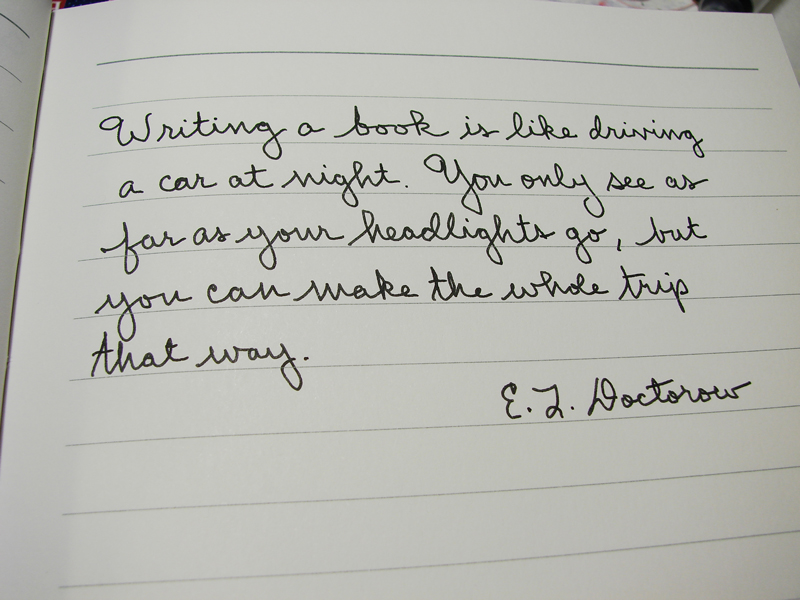 Writing a book is like driving
a car at night. You only see as
far as your headlights go, but
you can make the whole trip
that way.
E. L. Doctorow